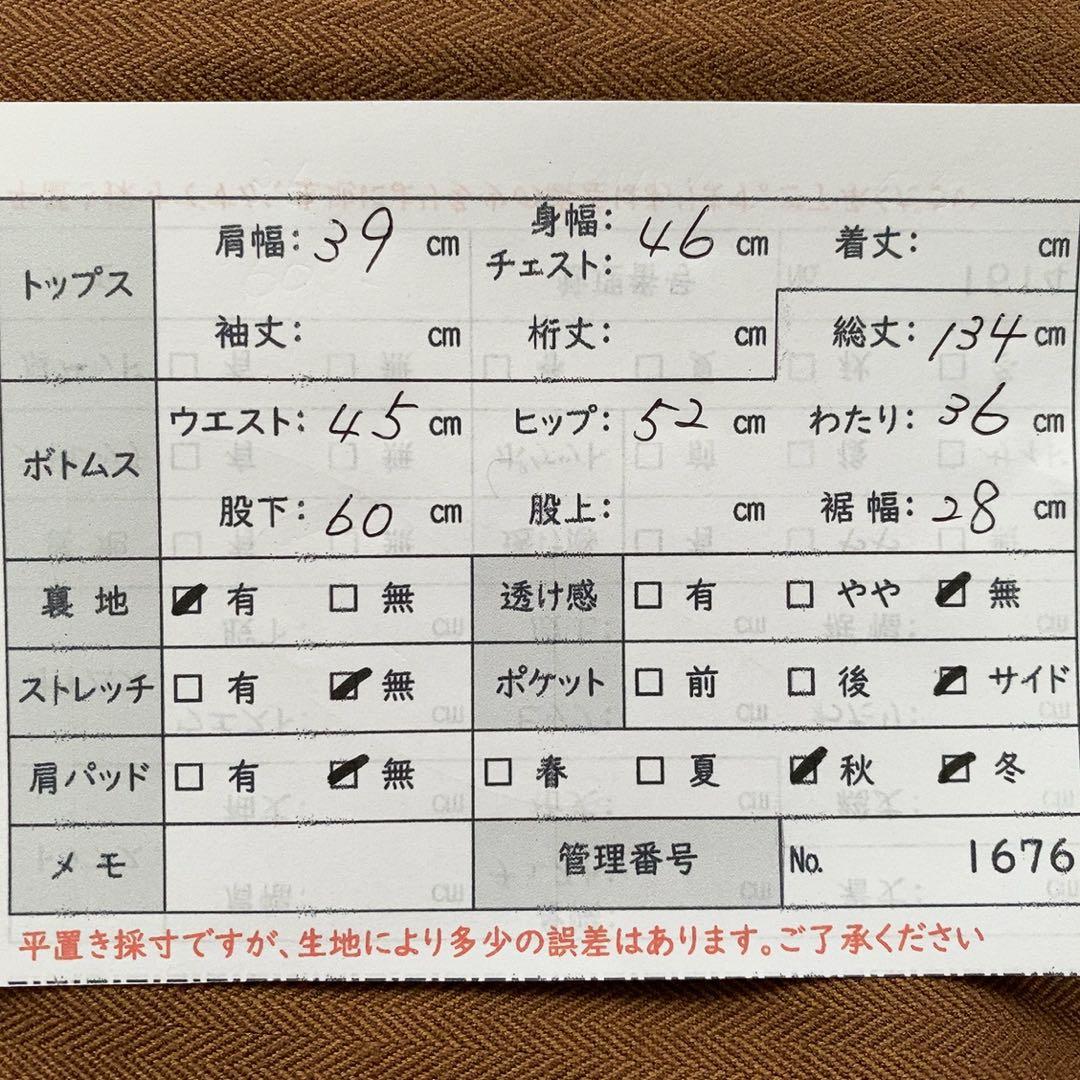 トップス 肩幅: 39 cm 身幅: チェスト: 46 cm 着丈: cm
袖丈: cm 裄丈: cm 総丈: 134 cm
ボトムス ウエスト: 45 cm ヒップ: 52 cm わたり: 36 cm
股下: 60 cm 股上: cm 裾幅: 28 cm
裏地 ☑ 有 □ 無 透け感 □ 有 □ やや ☑ 無
ストレッチ □ 有 ☑ 無 ポケット □ 前 □ 後 ☑ サイド
肩パッド □ 有 ☑ 無 □ 春 □ 夏 ☑ 秋 ☑ 冬
メモ 管理番号 No. 1676
平置き採寸ですが、生地により多少の誤差はあります。ご了承ください